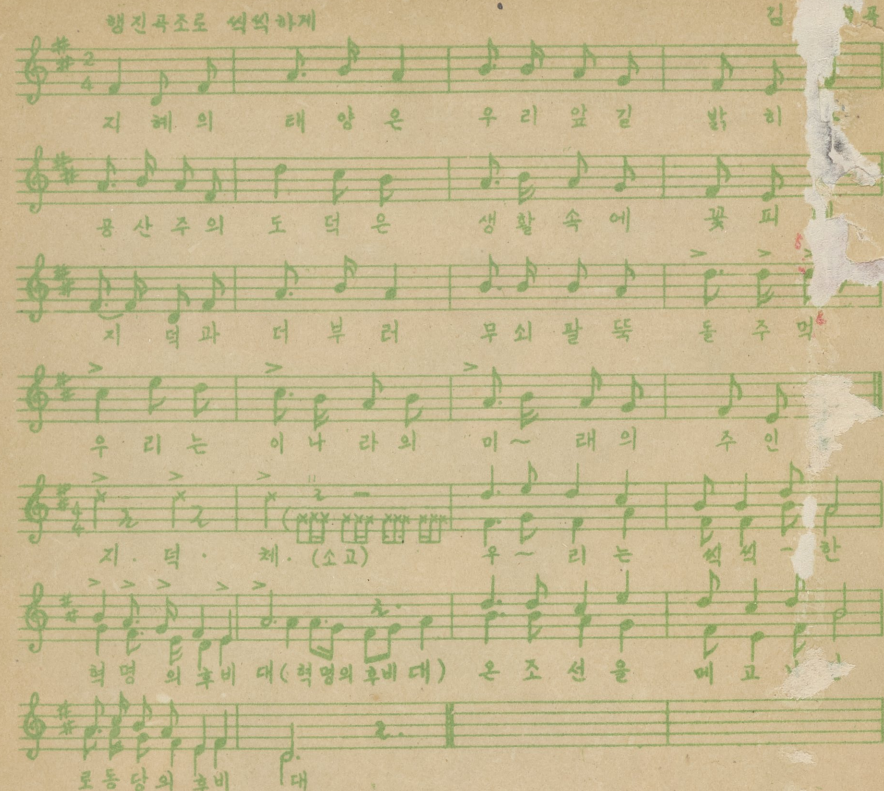 행진곡조로 씩씩하게 김 곡
2
4
지 혜 의 태 양 은 우 리 앞 길 밝 히
공 산 주 의 도 덕 은 생 활 속 에 꽃 피
지 덕 과 더 부 러 무 쇠 팔 뚝 돌 주 먹
우 리 는 이 나 라 의 미 ~ 래 의 주 인
4
4
지 · 덕 · 체 · (소고) 우 ~ 리 는 씩 씩 ~ 한
혁 명 의 후비 대 (혁명의 후비 대) 온 조 선 을 메 고
로동당의 후비 대